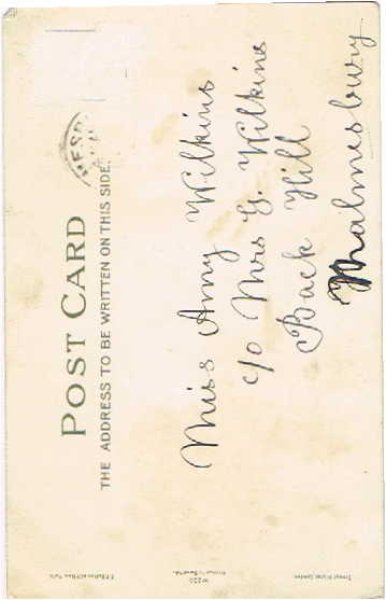 POST CARD
THE ADDRESS TO BE WRITTEN ON THIS SIDE.
Miss Amy Wilkins
c/o Mrs G. Wilkins
Back Hill
Malmesbury